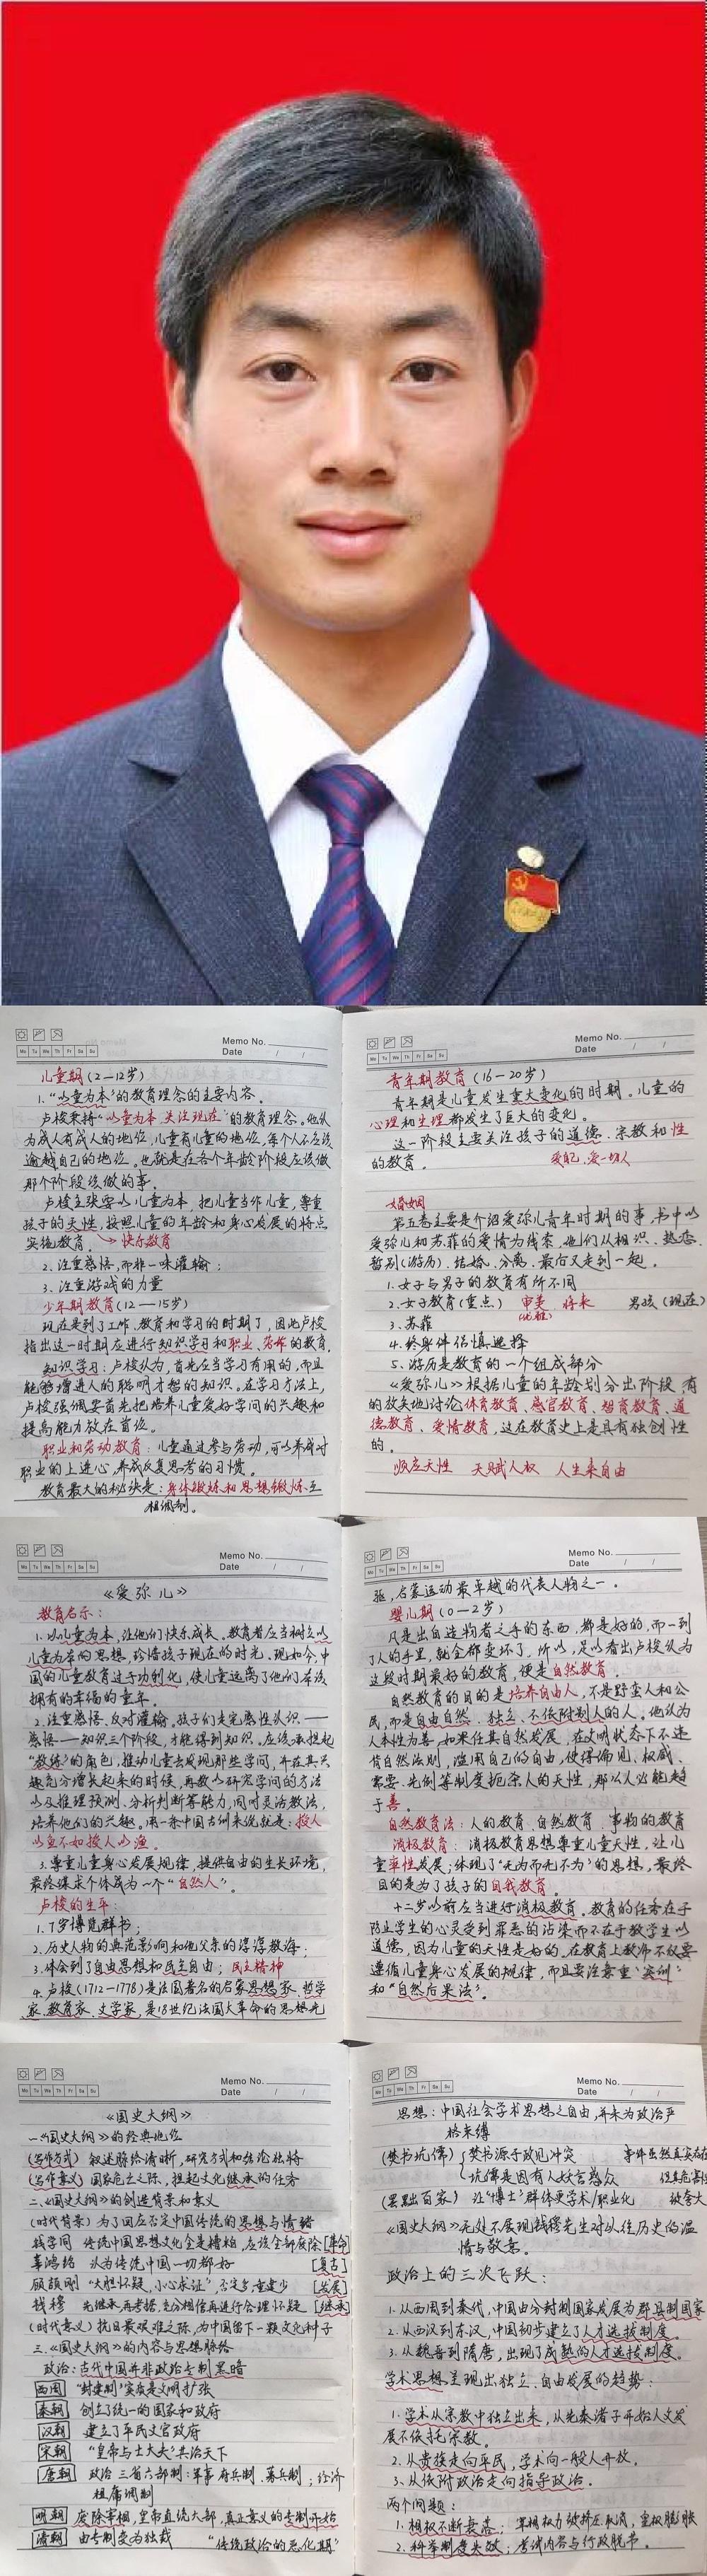 Memo No.
Date / /
Mo Tu We Th Fr Sa Su
儿童期(2-12岁)
1."以童为本"的教育理念的主要内容。
卢梭秉持"以童为本 关注现在"的教育理念。他认
为成人有成人的地位,儿童有儿童的地位,每个人不应该
逾越自己的地位。也就是在各个年龄阶段应该做
那个阶段该做的事。
卢梭主张要以儿童为本,把儿童当作儿童,尊重
孩子的天性,按照儿童的年龄和身心发展的特点
实施教育。→快乐教育
2.注重感悟,而非一味灌输;
3.注重游戏的力量
少年期教育(12—15岁)
现在是到了工作、教育和学习的时期了,因此卢梭
指出这一时期应进行知识学习和职业、劳作的教育。
知识学习:卢梭认为,首先应当学习有用的,而且
能够增进人的聪明才智的知识。在学习方法上,
卢梭强调要首先把培养儿童爱好学问的兴趣和
提高能力放在首位。
职业和劳动教育:儿童通过参与劳动,可以养成对
职业的上进心,养成反复思考的习惯。
教育最大的秘诀是:身体锻炼和思想锻炼互
相调剂。
Memo No.
Date / /
Mo Tu We Th Fr Sa Su
青年期教育(16-20岁)
青年期是儿童发生重大变化的时期。儿童的
心理和生理都发生了巨大的变化。
这一阶段主要关注孩子的道德、宗教和性
的教育。 爱己,爱一切人
婚姻
第五卷主要是介绍爱弥儿青年时期的事,书中以
爱弥儿和苏菲的爱情为线索,他们从相识、热恋、
暂别(游历)、结婚、分离、最后又走到一起。
1.女子与男子的教育有所不同
2.女子教育(重点) 审美 将来 男孩(现在)
3.苏菲
4.终身伴侣慎选择
5.游历是教育的一个组成部分
《爱弥儿》根据儿童的年龄划分出阶段,有
的放矢地讨论体育教育、感官教育、智育教育、道
德教育、爱情教育,这在教育史上是具有独创性
的。
顺应天性 天赋人权 人生来自由
Memo No.
Date / /
Mo Tu We Th Fr Sa Su
《爱弥儿》
教育启示:
1.以儿童为本,让他们快乐成长。教育者应当树立以
儿童为本的思想,珍惜孩子现在的时光。现如今,中
国的儿童教育过于功利化,使儿童远离了他们本该
拥有的幸福的童年。
2.注重感悟、反对灌输。孩子们走完感性认识——
感悟——知识三个阶段,才能得到知识。应该承担起
"教练"的角色,推动儿童去发现那些学问,并在其兴
趣充分增长起来的时候,再教以研究学问的方法
以及推理预测、分析判断等能力,同时灵活教法,
培养他们的兴趣。用一条中国古训来说就是:授人
以鱼不如授人以渔。
3.尊重儿童身心发展规律,提供自由的生长环境,
最终谋求个体成为一个"自然人"。
卢梭的生平:
1.7岁博览群书;
2.历史人物的典范影响和他父亲的谆谆教诲;
3.体会到了自由思想和民主自由;民主精神
4.卢梭(1712-1778)是法国著名的启蒙思想家、哲学
家、教育家、文学家,是18世纪法国大革命的思想先
Memo No.
Date / /
Mo Tu We Th Fr Sa Su
驱,启蒙运动最卓越的代表人物之一。
婴儿期(0-2岁)
凡是出自造物者之手的东西,都是好的,而一到
了人的手里,就全都变坏了,所以,足以看出卢梭认为
这段时期最好的教育,便是自然教育。
自然教育的目的是培养自由人,不是野蛮人和公
民,而是自由自然、独立、不依附别人的人。他认为
人本性为善,如果任其自然发展,在文明状态下不违
背自然法则,滥用自己的自由,使得偏见、权威、
需要、先例等制度扼杀人的天性,那么人必能趋
于善。
自然教育法:人的教育、自然教育、事物的教育
消极教育:消极教育思想尊重儿童天性,让儿
童率性发展;体现了"无为而无不为"的思想,最终
目的是为了孩子的自我教育。
十二岁以前应当进行消极教育。教育的任务在于
防止学生的心灵受到罪恶的沾染而不在于教学生以
道德,因为儿童的天性是好的,在教育上教师不仅要
遵循儿童身心发展的规律,而且要注意重"实训"
和"自然后果法"。
Memo No.
Date / /
Mo Tu We Th Fr Sa Su
《国史大纲》
一.《国史大纲》的经典地位
(写作方式) 叙述脉络清晰,研究方式和结论独特
(写作意义) 国家危亡之际,担起文化继承的任务
二.《国史大纲》的创造背景和意义
(时代背景) 为了回应否定中国传统的思想与情绪
钱学同 传统中国思想文化全是糟粕,应该全部废除[革命]
辜鸿铭 认为传统中国一切都好 [复古]
顾颉刚 "大胆怀疑,小心求证"否定多,重建少 [发展]
钱穆 先继承,再考据,充分相信再进行合理怀疑 [继承]
(时代意义) 抗日最艰难之际,为中国留下一颗文化种子
三.《国史大纲》的内容与思想脉络
政治:古代中国并非政治专制黑暗
西周 "封建制"实质是文明扩张
秦朝 创立了统一的国家和政府
汉朝 建立了平民文官政府
宋朝 "皇帝与士大夫"共治天下
唐朝 政治 三省六部制;军事 府兵制、募兵制;经济
租庸调制
明朝 废除宰相,皇帝直统六部,真正意义的专制开始
清朝 由专制变为独裁 "传统政治的恶化期"
Memo No.
Date / /
Mo Tu We Th Fr Sa Su
思想:中国社会学术思想之自由,并未为政治严
格束缚
(焚书坑儒) 焚书源于政见冲突 事件虽然真实存在
坑儒是因有人妖言惑众 但其危害
(罢黜百家) 让"博士"群体更学术/职业化 被夸大
《国史大纲》无处不展现钱穆先生对以往历史的温
情与敬意。
政治上的三次飞跃:
1.从西周到秦代,中国由分封制国家发展为郡县制国家
2.从西汉到东汉,中国初步建立了人才选拔制度。
3.从魏晋到隋唐,出现了成熟的人才选拔制度。
学术思想呈现出独立、自由发展的趋势:
1.学术从宗教中独立出来,从先秦诸子开始人文发
展不依托宗教。
2.从贵族走向平民,学术向一般人开放。
3.从依附政治走向指导政治。
两个问题:
1.相权不断衰落:宰相权力被挤压、取消,皇权膨胀
2.科举制度失效:考试内容与行政脱节。